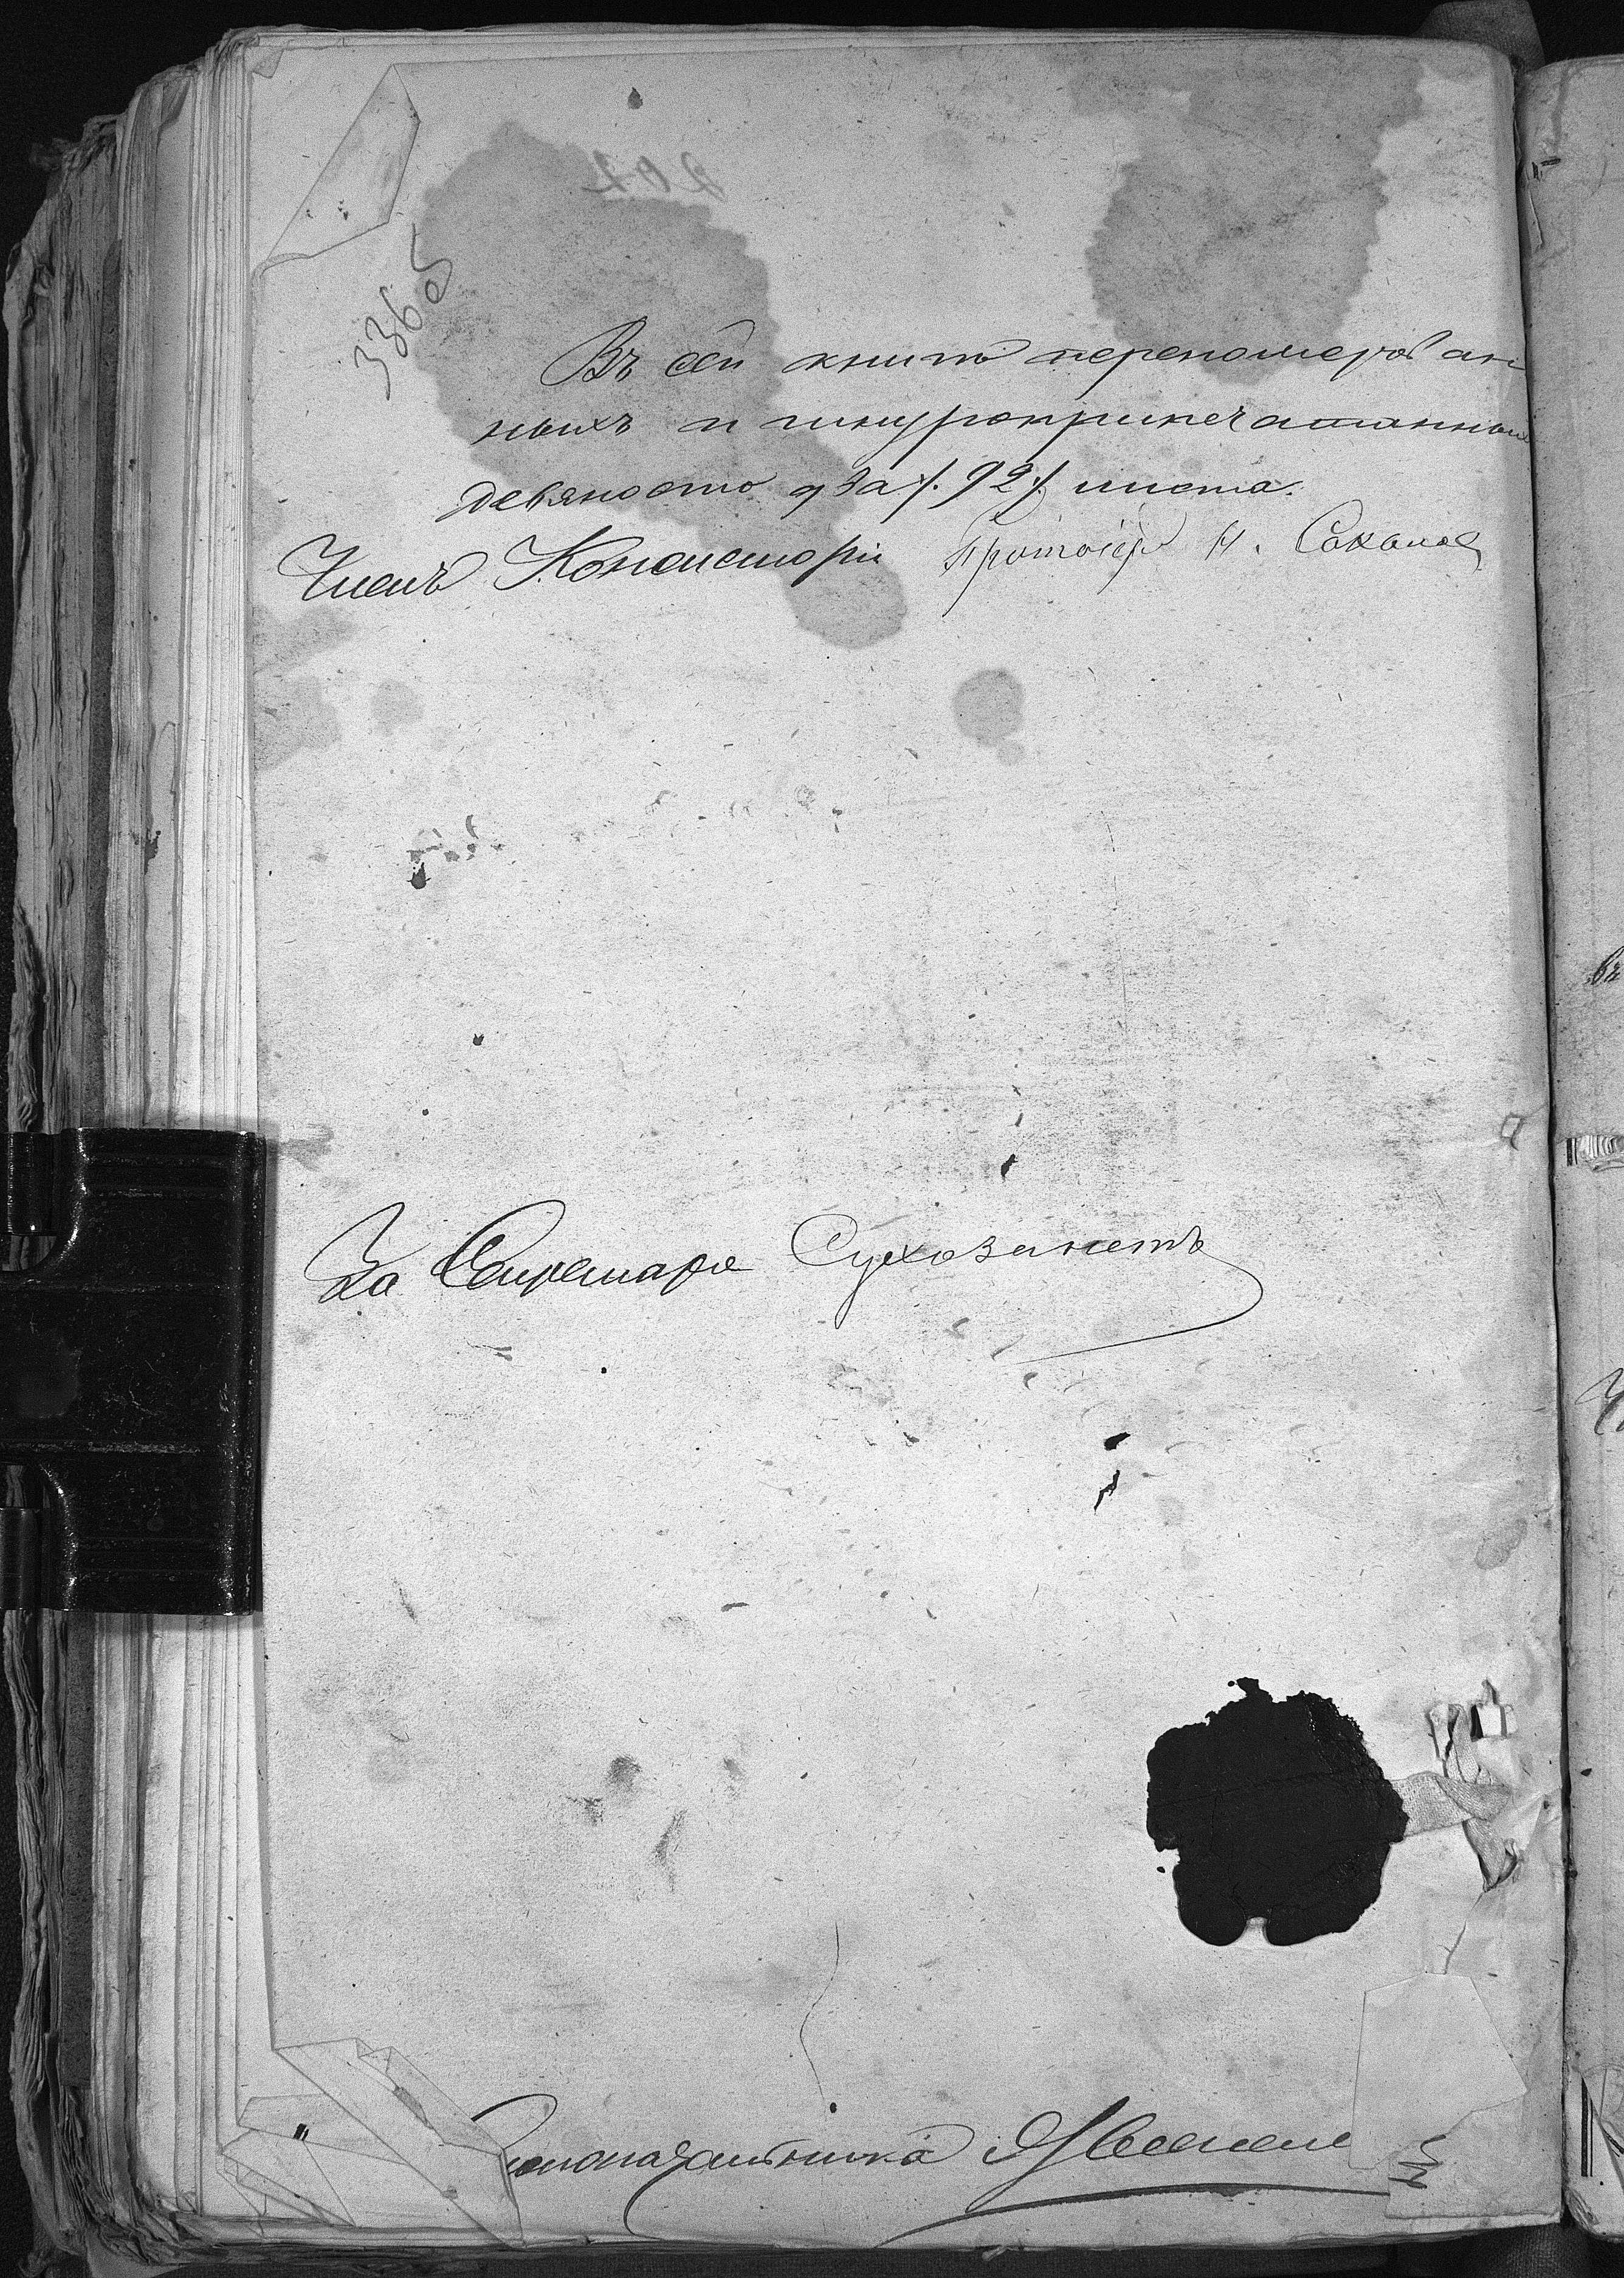 336об
Въ сей книгѣ перенумерован-
ныхъ и шнуроприпечатанныхъ
девяносто два /. 92 ./ листа.
Членъ Консисторіи Протоіер. Н. Соколов
За Секретаря Сухозанетъ
Столоначальника